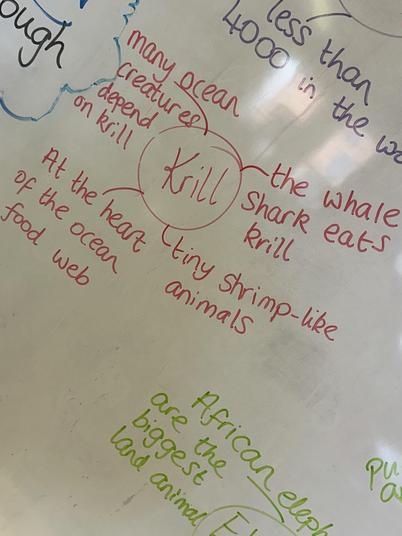 ough
less than
4000 in the
many ocean
creatures
depend
on krill
Krill
the whale
Shark eats
krill
At the heart
of the ocean
food web
tiny shrimp-like
animals
African
are the
biggest
land animal